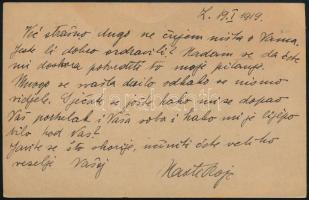 Z. 19.I 1919.
Već strašno dugo ne čujem ništa o Vama.
Jeste li dobro ozdravili? Nadam se da ćete
mi doskora potvrditi to moje pitanje.
Mnogo se našta dasilo odkako se nismo
vidjele. Sjećate se jošte kako mi se dopao
Vaš postelak i Vaša soba i kako mi je lijepo
bilo kod Vas?
Javite se što skorije, učiniti ćete veliko
veselje Vašoj